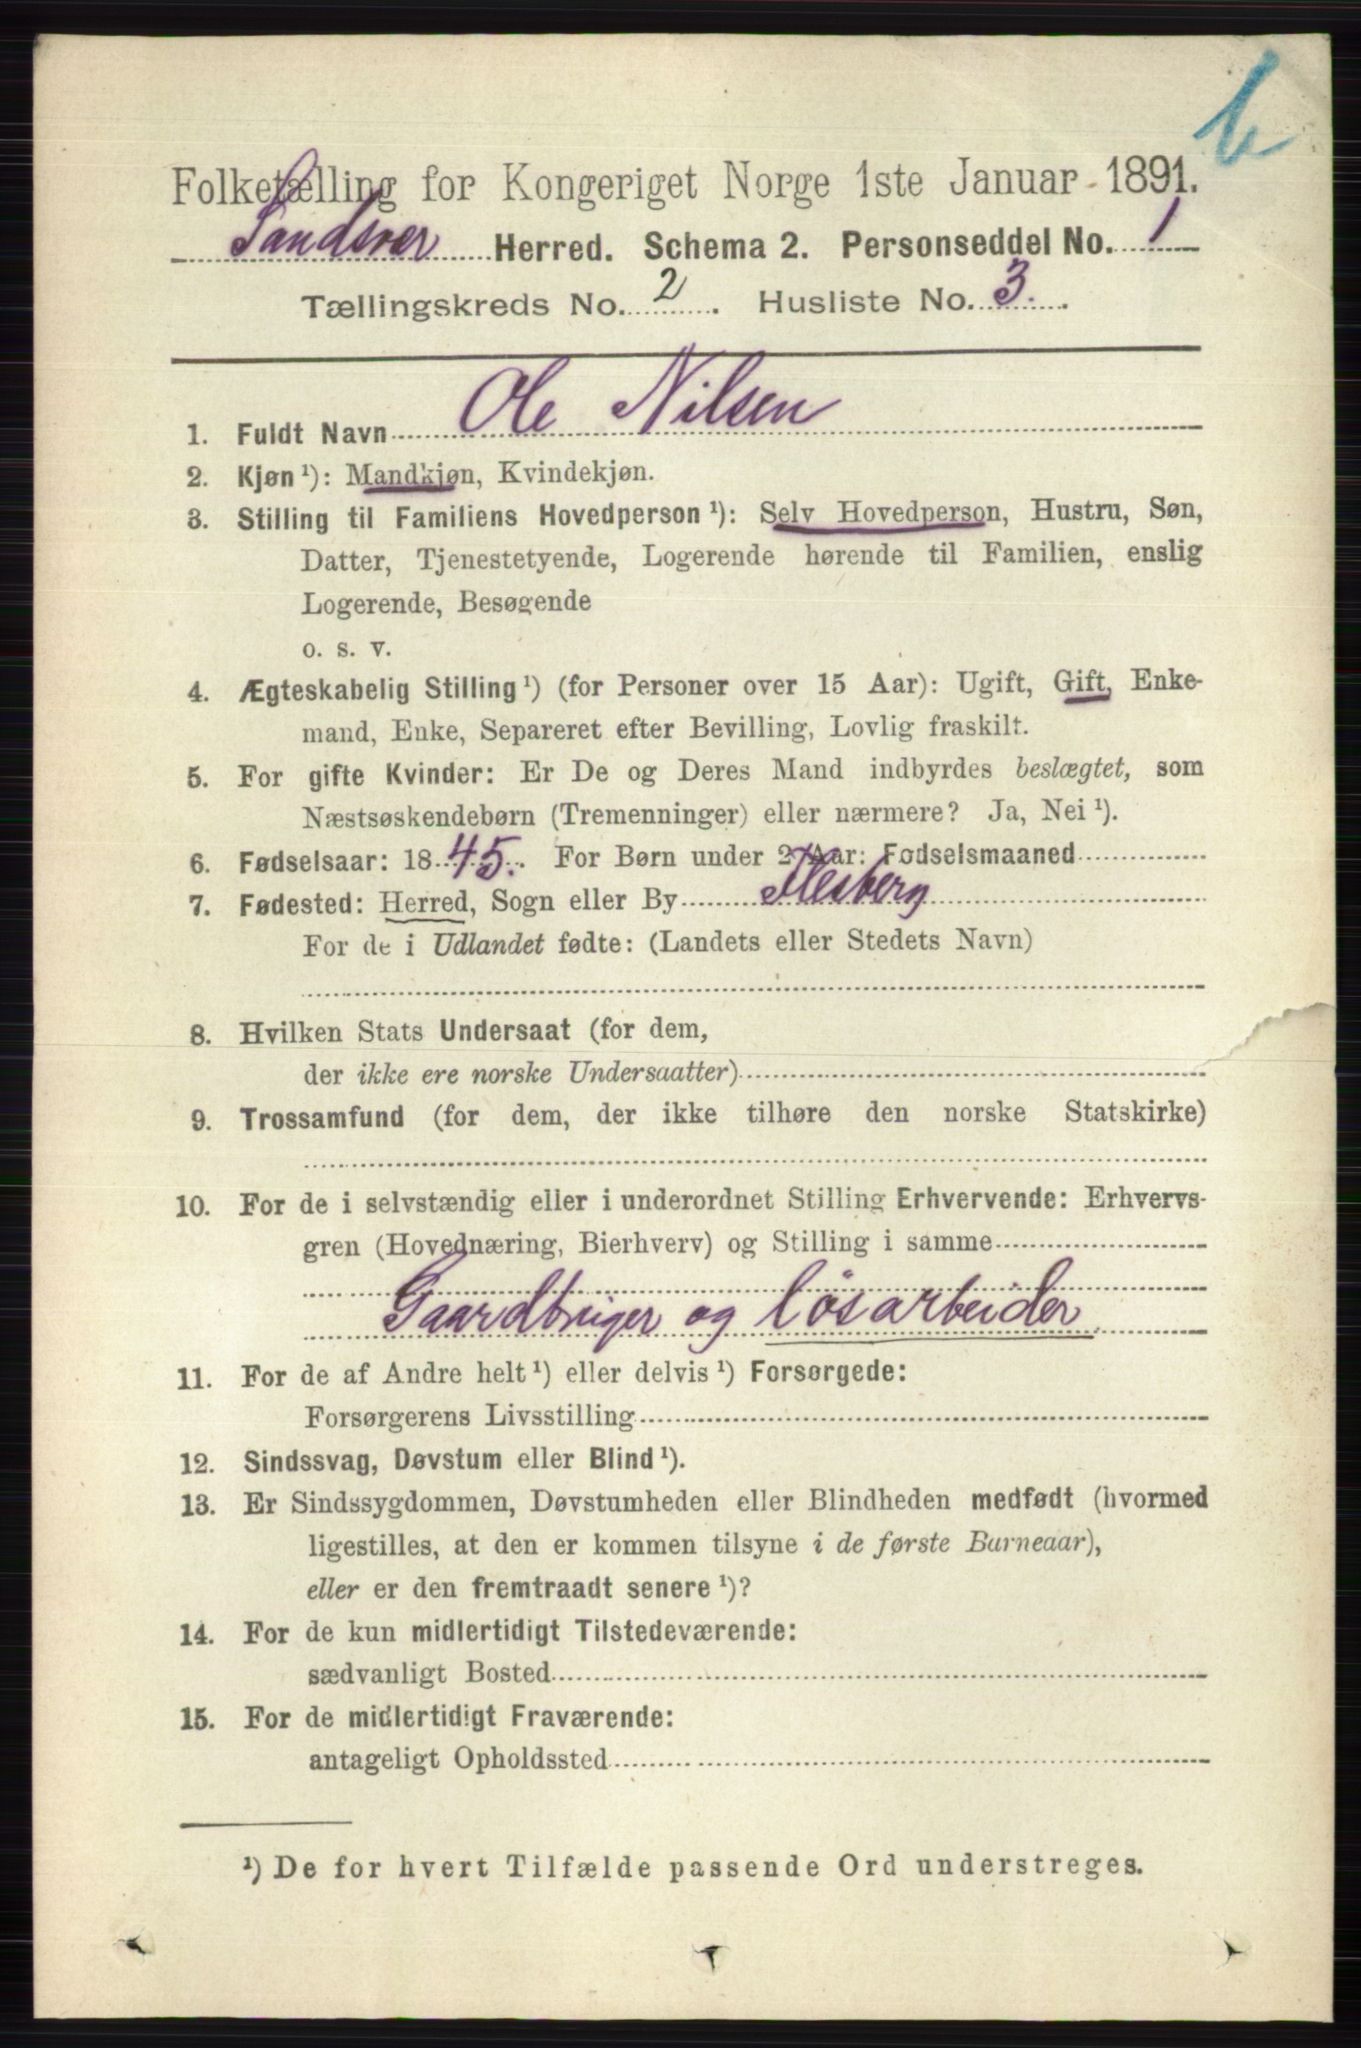 b
Folketælling for Kongeriget Norge 1ste Januar 1891.
Sandsvær Herred. Schema 2. Personseddel No. 1
Tællingskreds No. 2. Husliste No. 3.
1. Fuldt Navn Ole Nilsen
2. Kjøn¹): Mandkjøn, Kvindekjøn.
3. Stilling til Familiens Hovedperson¹): Selv Hovedperson, Hustru, Søn,
Datter, Tjenestetyende, Logerende hørende til Familien, enslig
Logerende, Besøgende
o. s. v.
4. Ægteskabelig Stilling¹) (for Personer over 15 Aar): Ugift, Gift, Enke-
mand, Enke, Separeret efter Bevilling, Lovlig fraskilt.
5. For gifte Kvinder: Er De og Deres Mand indbyrdes beslægtet, som
Næstsøskendebørn (Tremenninger) eller nærmere? Ja, Nei¹).
6. Fødselsaar: 1845. For Børn under 2 Aar: Fødselsmaaned
7. Fødested: Herred, Sogn eller By Flesberg
For de i Udlandet fødte: (Landets eller Stedets Navn)
8. Hvilken Stats Undersaat (for dem,
der ikke ere norske Undersaatter)
9. Trossamfund (for dem, der ikke tilhøre den norske Statskirke)
10. For de i selvstændig eller i underordnet Stilling Erhvervende: Erhvervs-
gren (Hovednæring, Bierhverv) og Stilling i samme
Gaardbruger og løsarbeider
11. For de af Andre helt¹) eller delvis¹) Forsørgede:
Forsørgerens Livsstilling
12. Sindssvag, Døvstum eller Blind¹).
13. Er Sindssygdommen, Døvstumheden eller Blindheden medfødt (hvormed
ligestilles, at den er kommen tilsyne i de første Barneaar),
eller er den fremtraadt senere¹)?
14. For de kun midlertidigt Tilstedeværende:
sædvanligt Bosted
15. For de midlertidigt Fraværende:
antageligt Opholdssted
¹) De for hvert Tilfælde passende Ord understreges.